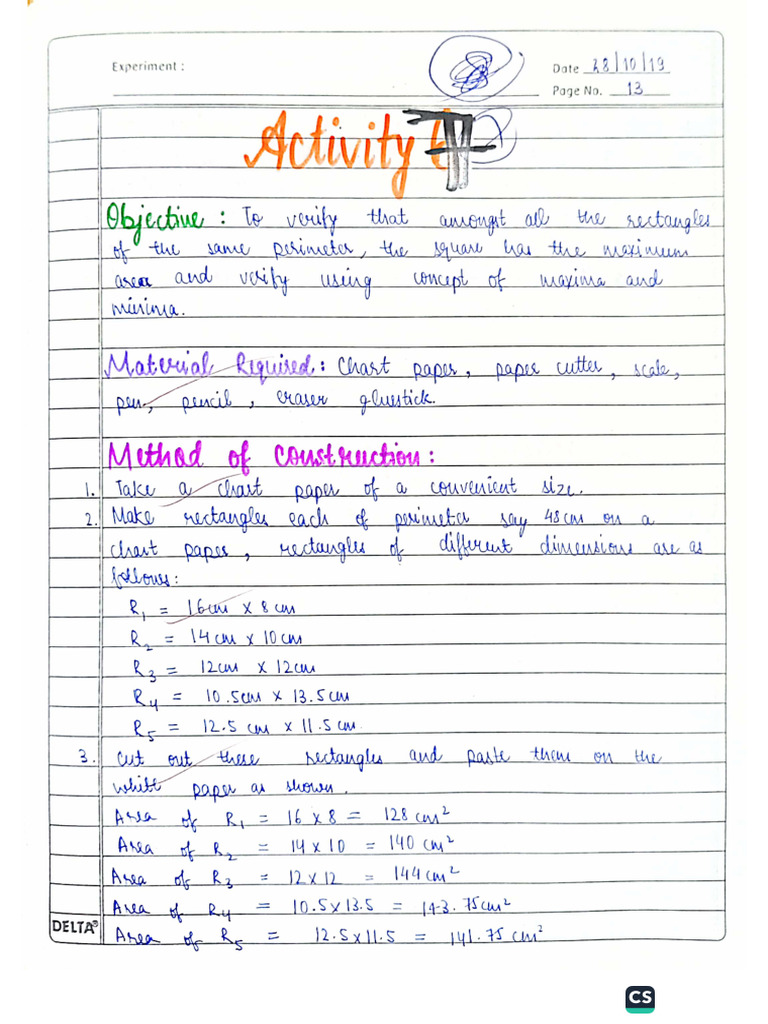 Experiment :
Date 28/10/19
Page No. 13
Activity
Objective : To verify that amongst all the rectangles
of the same perimeter, the square has the maximum
area and verify using concept of maxima and
minima.
Material Required : Chart paper, paper cutter, scale,
pen, pencil, eraser gluestick.
Method of Construction :
1. Take a chart paper of a convenient size.
2. Make rectangles each of perimeter say 48 cm on a
chart paper, rectangles of different dimensions are as
follows :
R₁ = 16cm × 8 cm
R₂ = 14 cm × 10 cm
R₃ = 12cm × 12cm
R₄ = 10.5cm × 13.5cm
R₅ = 12.5 cm × 11.5 cm
3. Cut out these rectangles and paste them on the
white paper as shown.
Area of R₁ = 16 × 8 = 128 cm²
Area of R₂ = 14 × 10 = 140 cm²
Area of R₃ = 12 × 12 = 144 cm²
Area of R₄ = 10.5 × 13.5 = 143.75 cm²
Area of R₅ = 12.5 × 11.5 = 141.75 cm²
DELTA®
CS